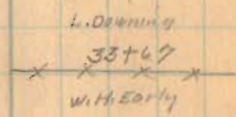 L. Downing
33+67
W.H. Early